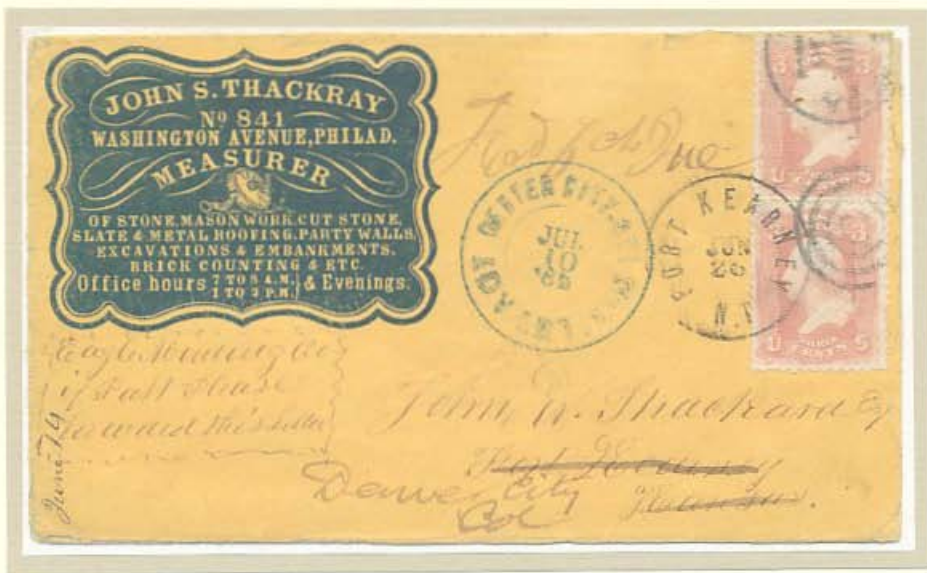 JOHN S. THACKRAY
No 841
WASHINGTON AVENUE, PHILAD.
MEASURER
OF STONE, MASON WORK, CUT STONE,
SLATE & METAL ROOFING, PARTY WALLS,
EXCAVATIONS & EMBANKMENTS.
BRICK COUNTING & ETC.
Office hours 7 TO 8 A.M. 1 TO 3 P.M. & Evenings.
Due
JUL
10
FORT KEARNEY
JUN
26
N.T.
3
U CENTS S
3
U CENTS S
if Past Please
forward this letter
June 14
John W. Thackard Esq
Fort Kearney
Denver City
Col